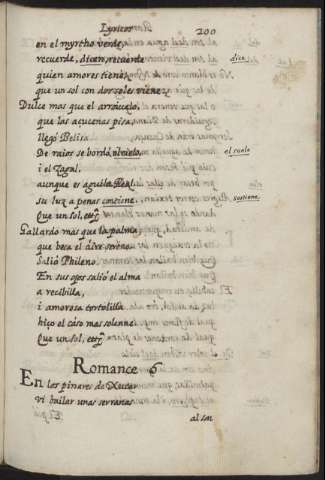 Lyricos 200
en el myrtho verde,
recuerde, dicen, recuerde dice
quien amores tiene,
que un sol con dos soles viene.
Dulce mas que el arroyuelo,
que las açucenas pisa,
llegó Belisa
De raios se bordó el cielo, el suelo
i el Zagal,
aunque es aguila Real
su luz a penas contiene. sostiene
Que un sol, etc.
Gallardo más que la palma
que besa el aire sereno
Salió Phileno.
En sus ojos salió el alma
a recibilla,
i amorosa tortolilla
hiço el caso mas solenne.
Que un sol, etc.
Romance 6
En los pinares de Xucar
vi bailar unas serranas
al son